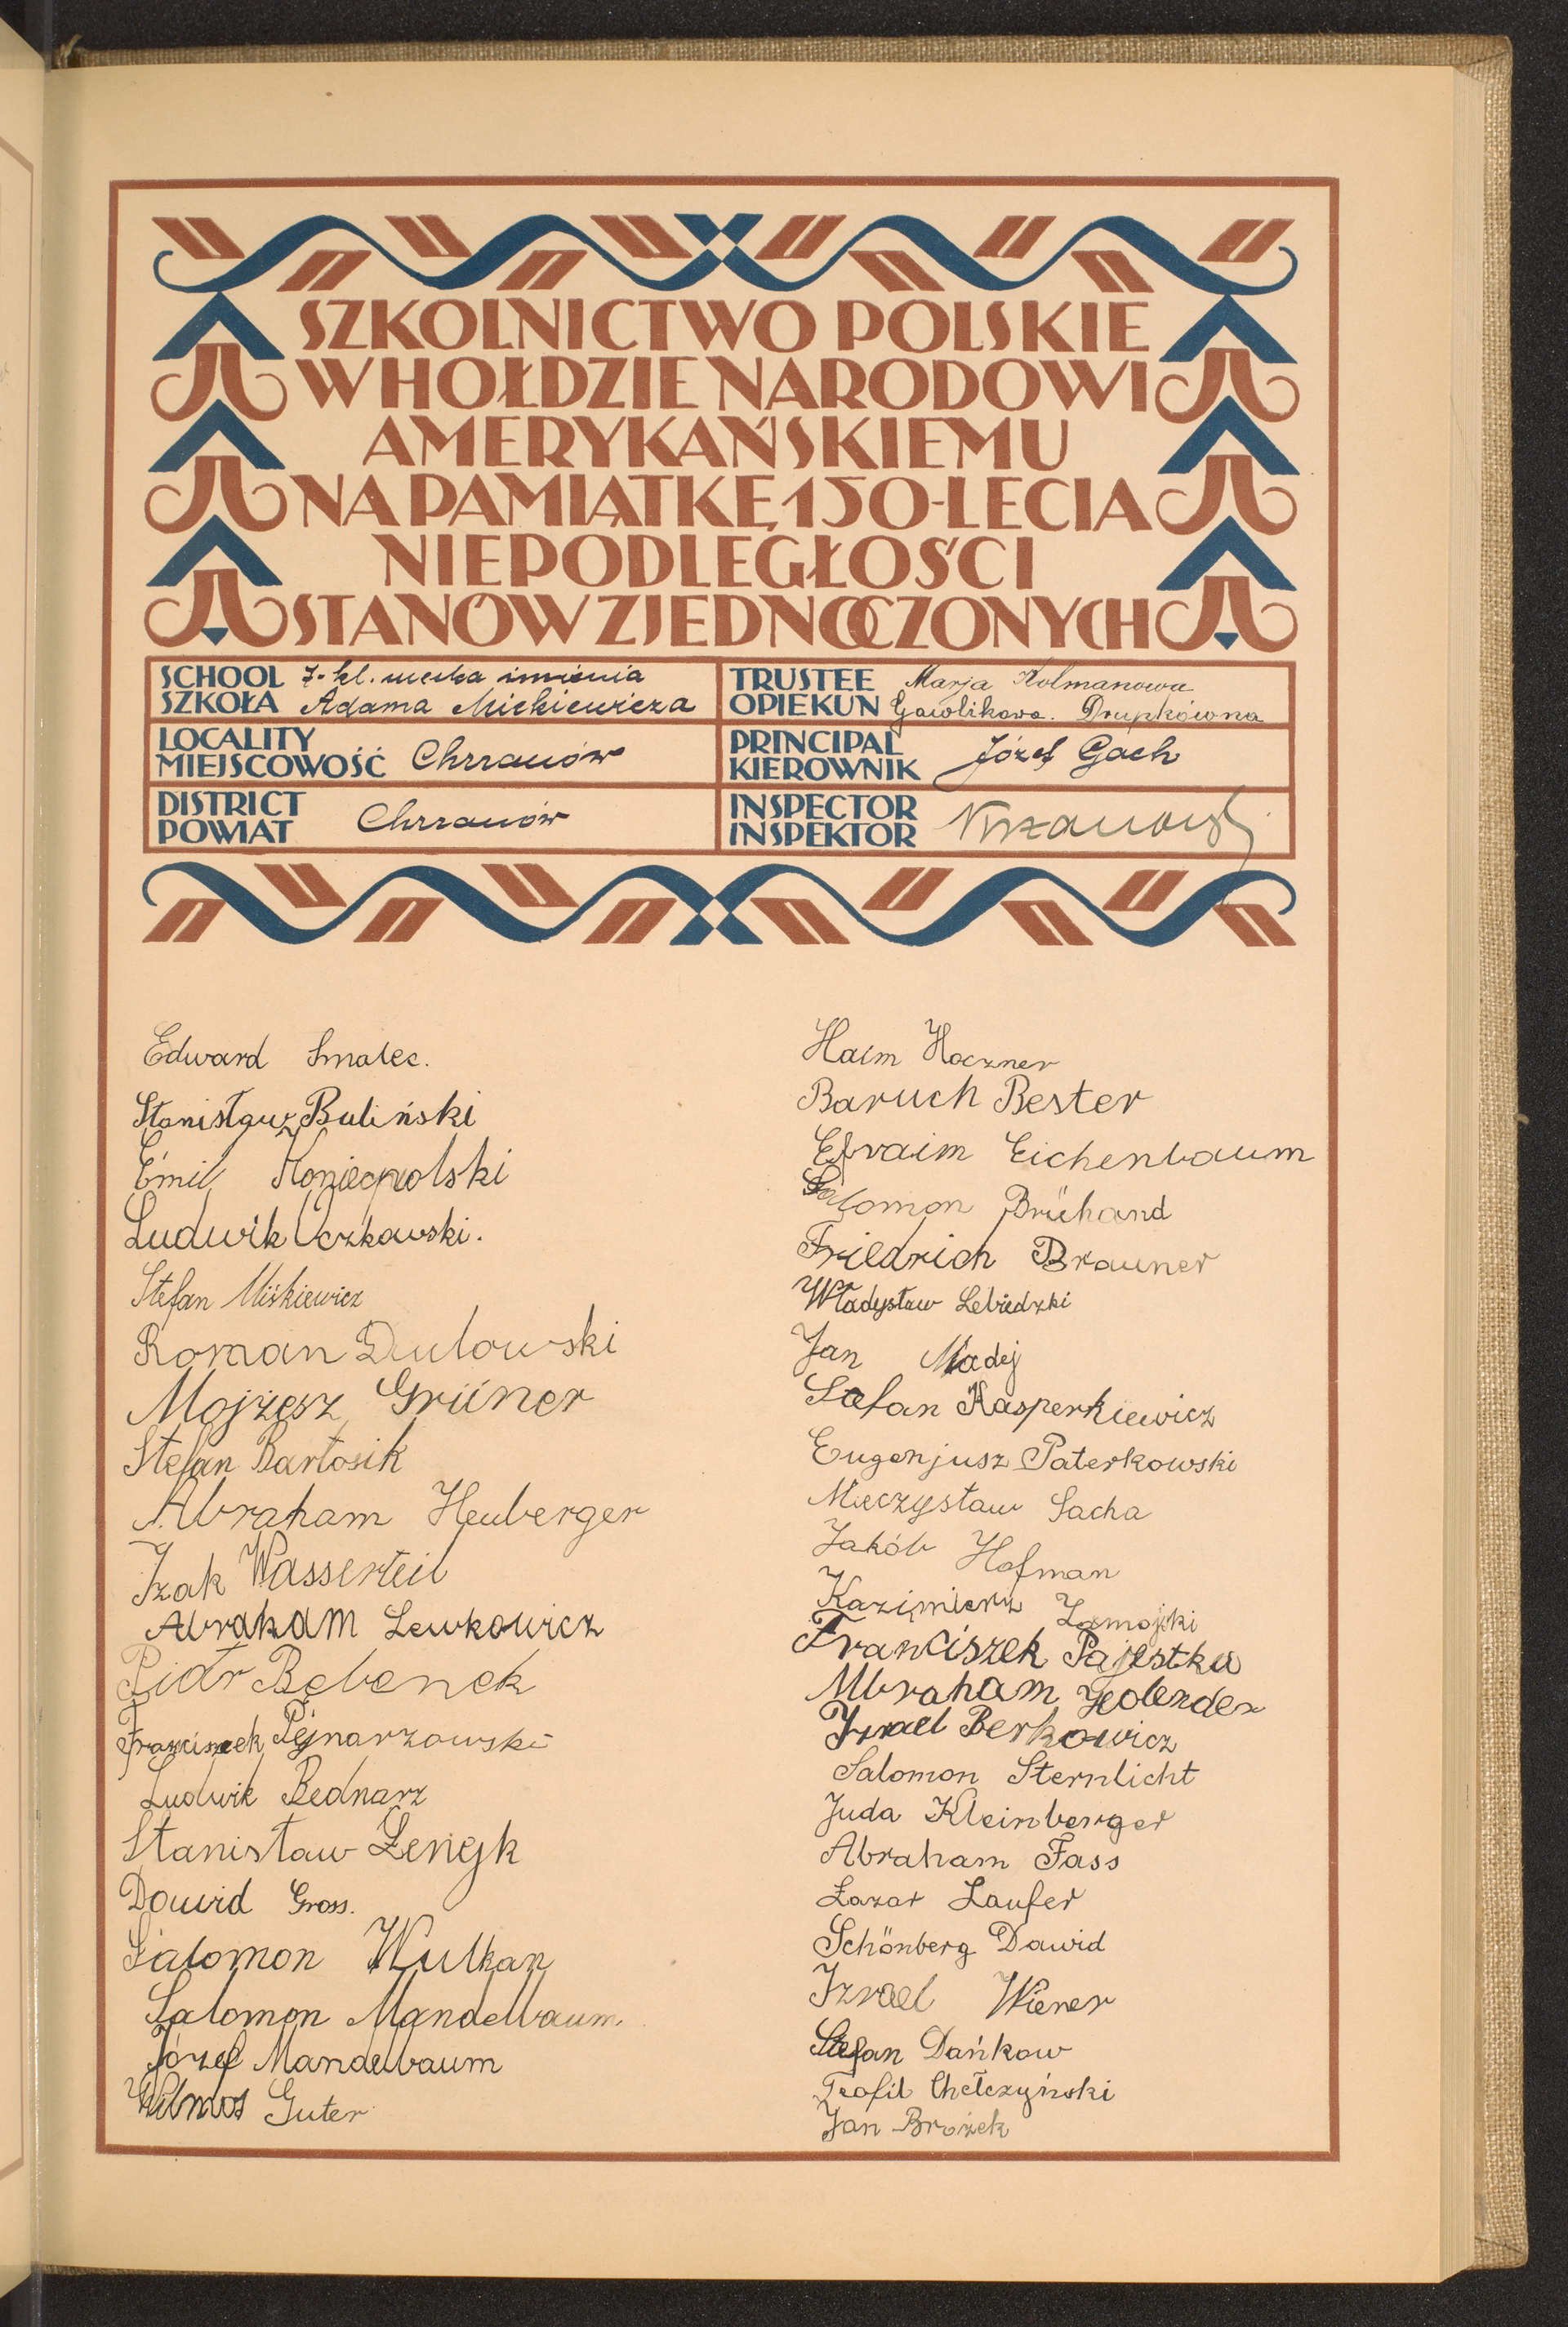 SZKOLNICTWO POLSKIE
W HOŁDZIE NARODOWI
AMERYKAŃSKIEMU
NA PAMIĄTKĘ 150-LECIA
NIEPODLEGŁOŚCI
STANÓW ZJEDNOCZONYCH
SCHOOL 7-kl. męska imienia
SZKOŁA Adama Mickiewicza
TRUSTEE Marja Kolmanowa
OPIEKUN Gawlikowa. Drupkówna
LOCALITY
MIEJSCOWOŚĆ Chrzanów
PRINCIPAL
KIEROWNIK Józef Gach
DISTRICT
POWIAT Chrzanów
INSPECTOR
INSPEKTOR
Edward Smalec.
Stanisław Buliński
Emil Koniecpolski
Ludwik Oczkowski.
Stefan Miśkiewicz
Roman Dulowski
Mojżesz Grüner
Stefan Bartosik
Abraham Heuberger
Izak Wasserteil
Abraham Lewkowicz
Piotr Bębenek
Franciszek Pejnarzowski
Ludwik Bednarz
Stanisław Żengk
Dawid Gross.
Salomon Wulkan
Salomon Mandelbaum
Józef Mandelbaum
Wilmos Guter
Haim Hoczner
Baruch Bester
Efraim Eichenbaum
Salomon Brühand
Friedrich Brauner
Władysław Lebiedzki
Jan Madej
Stefan Kasperkiewicz
Eugenjusz Paterkowski
Mieczysław Sacha
Jakób Hofman
Kazimierz Zamojski
Franciszek Pajestka
Abraham Holender
Izrael Berkowicz
Salomon Sternlicht
Juda Kleinberger
Abraham Fass
Łazar Laufer
Schönberg Dawid
Izrael Wiener
Stefan Dańkow
Teofil Chełczyński
Jan Brożek